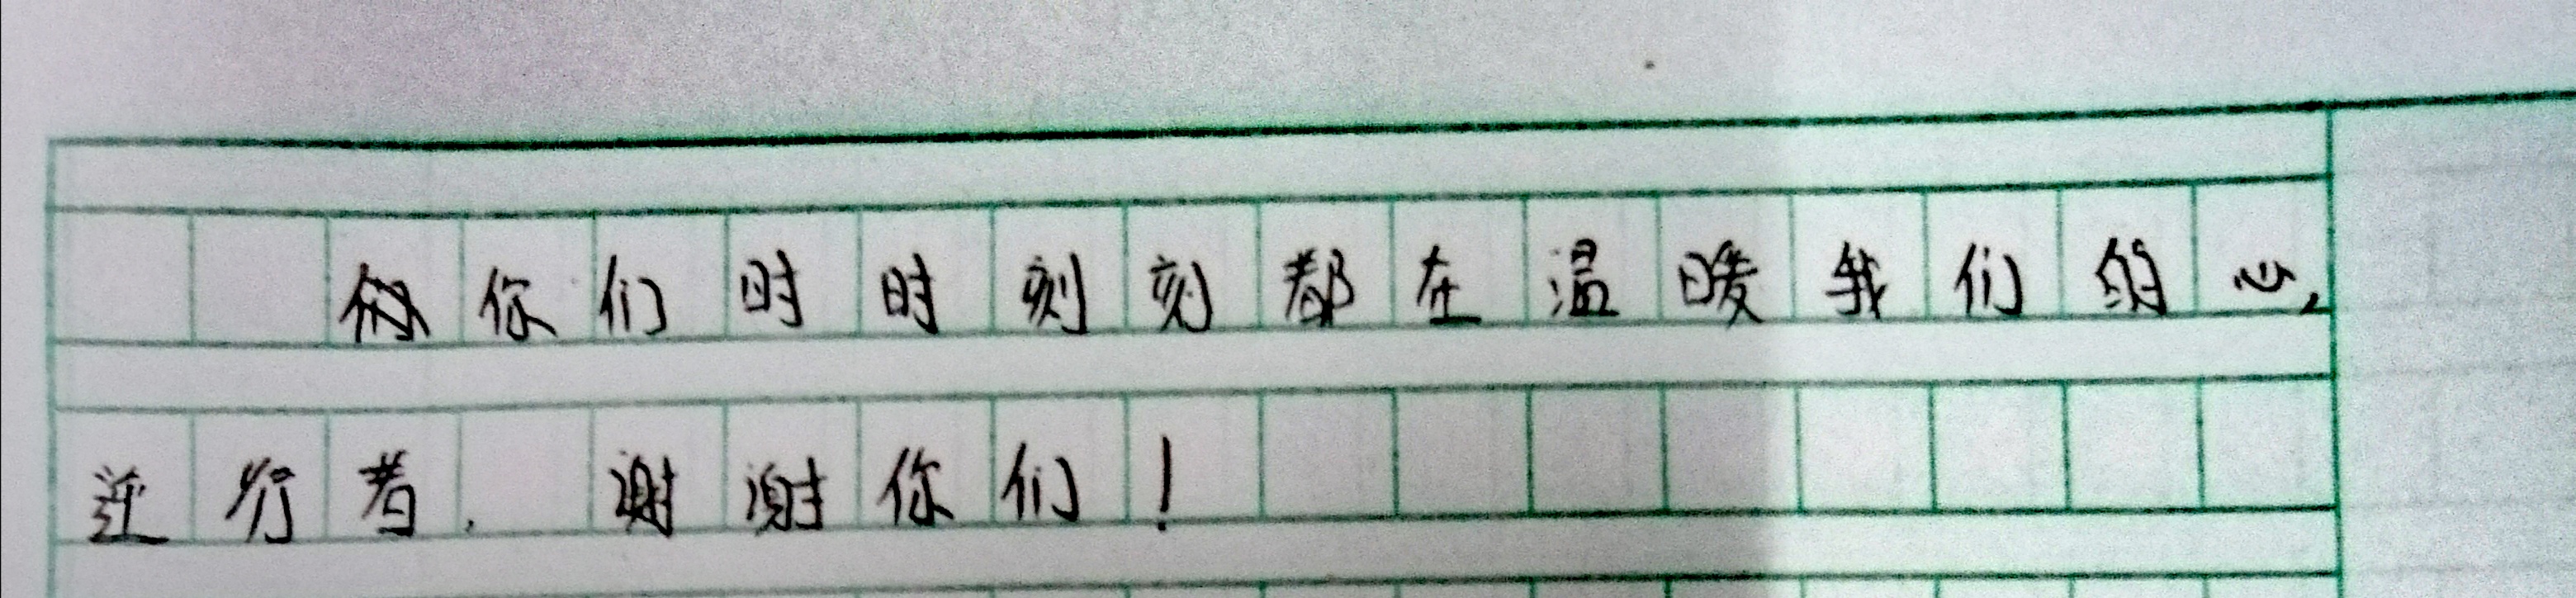 你们时时刻刻都在温暖我们的心,
逆行者,谢谢你们!